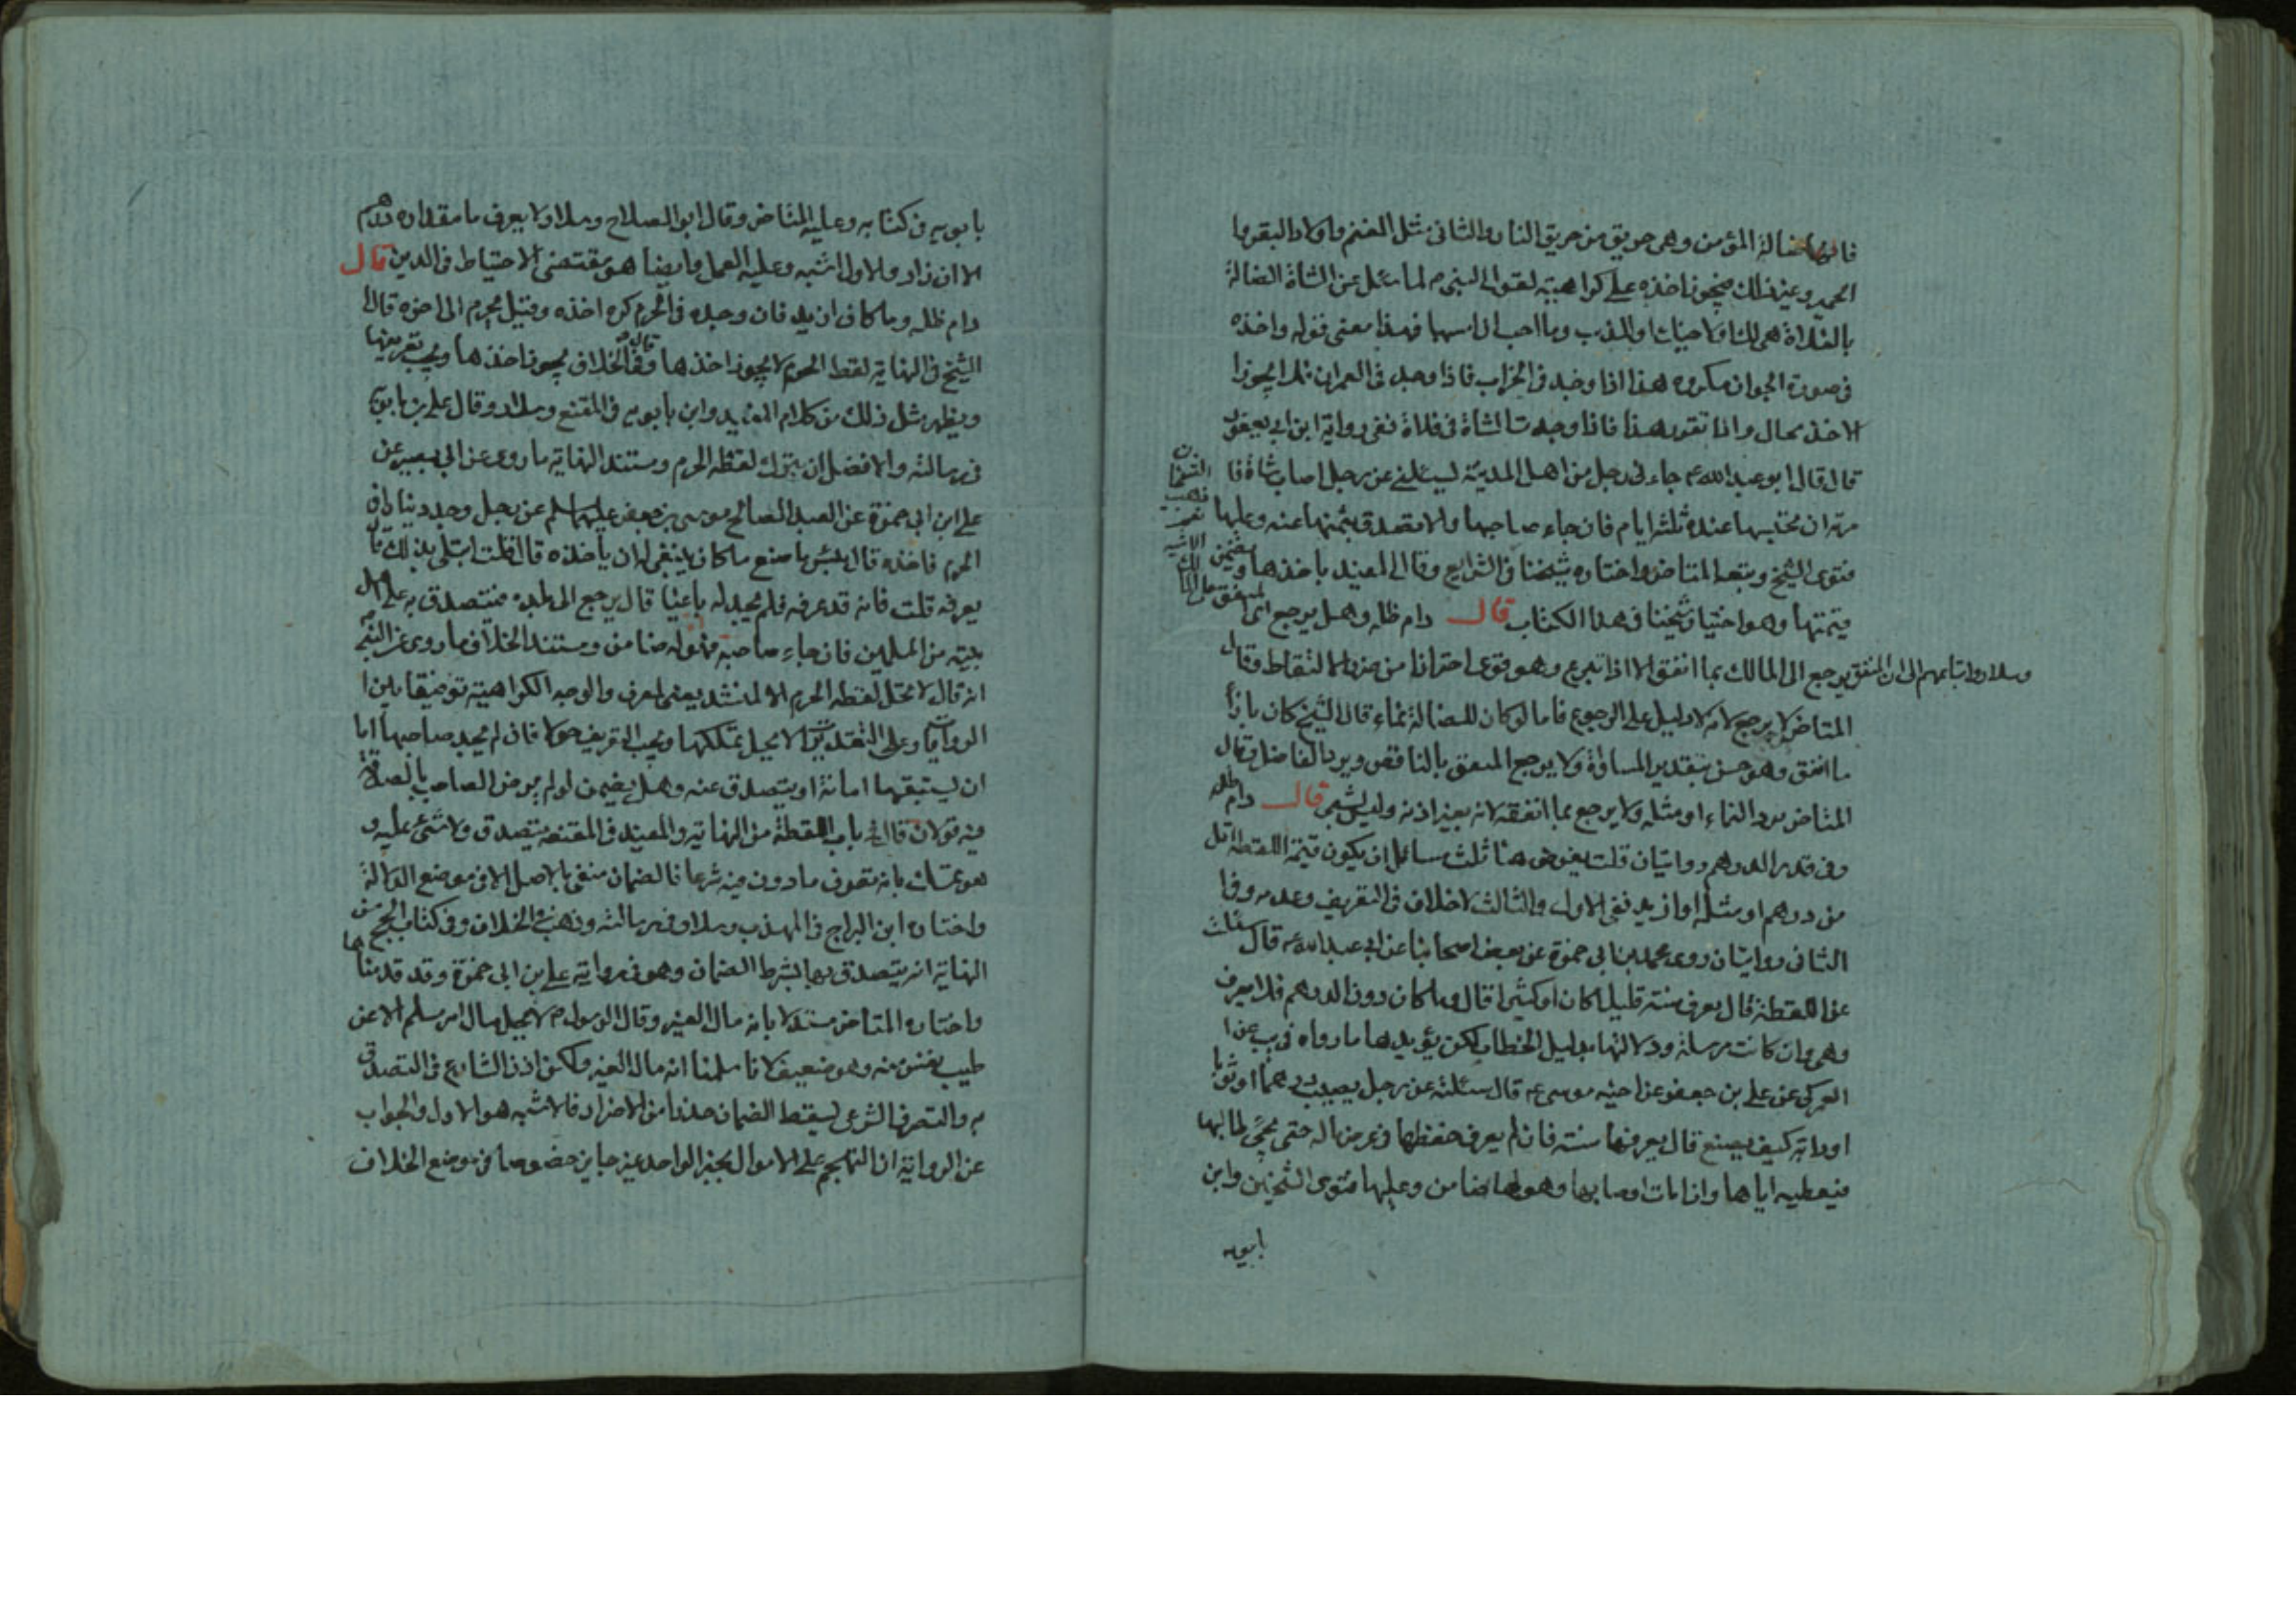 فانها ضالة المؤمن وهى حريق من حريق النار والثانى مثل الغنم واولاد البقر وا
الحمير وغير ذلك فيجوز اخذه على كراهية لقول النبى ص لما سئل عن الشاة الضالة
بالفلاة هى لك او لاخيك او للذئب وما احب ان امسها فهذا معنى قوله واخذه
فى صورة الجواز مكروه هذا اذا وجد فى الخراب فاذا وجد فى العمران فلا يجوز
الاخذ بحال واذا تقرر هذا فاذا وجدت الشاة فى فلاة ففى رواية ابن ابى يعفور
قال قال ابو عبد الله ع جاء نى رجل من اهل المدينة ليسئلنى عن رجل اصاب شاة فا
مرته ان يحتبسها عنده ثلثة ايام فان جاء صاحبها والا تصدق بثمنها عنه وعليها
فتوى الشيخ وتبعه المتاخر واختاره شيخنا فى الشرايع وقال المفيد ياخذها و
قيمتها وهو اختيار شيخنا فى هذا الكتاب قال دام ظله وهل يرجع
وسلار واتباعهم الى ان المنفق يرجع الى المالك بما انفق الا اذا تبرع وهو قوى احترازا من ضرر الالتقاط وقال
المتاخر لا يرجع لانه لا دليل على الرجوع فاما لو كان للضالة نماء قال الشيخ كان بازأ
ما انفق وهو حسن بتقدير المساواة ولا يرجع المنفق بالناقص ويرد الفاضل وقال
المتاخر يرد النماء او مثله ولا يرجع بما انفقه لانه بغير اذنه وليس بشئ قال دام ظله
وفى قدر الدرهم روايتان قلت يفرض هنا ثلث مسائل ان يكون قيمة اللقطة اقل
من درهم او مثله او ازيد ففى الاول والثالث لا خلاف فى التعريف وعدمه وفى ا
الثانى روايتان روى محمد بن ابى حمزة عن بعض اصحابنا عن ابى عبد الله ع قال سئلت
عن اللقطة قال يعرف سنة قليلا كان او كثيرا قال وما كان دون الدرهم فلا يعرف
وهى وان كانت مرسلة ودلالتها بدليل الخطاب لكن يؤيدها ما رواه فى يب عن ا
العمركى عن على بن جعفر عن اخيه موسى ع قال سئلته عن رجل يصيب درهما او ثوبا
او دابة كيف يصنع قال يعرفها سنة فان لم يعرف حفظها فى عرض ماله حتى يجئ طالبها
فيعطيه اياها وان مات اوصى بها وهو لها ضامن وعليها فتوى الشيخين وابن
بابويه
بابويه فى كتابه وعليه المتاخر وقال ابو الصلاح وسلار ولا يعرف ما مقداره درهم
الا ان زاد والاول اشبه وعليه العمل وايضا هو مقتضى الاحتياط فى الدين قال
دام ظله وما كان ازيد فان وجده فى الحرم كره اخذه وقيل يحرم الى اخره قال ا
الشيخ فى النهاية لقطة الحرم لا يجوز اخذها وقال فى الخلاف يجوز اخذها ويجب تعريفها
ويظهر مثل ذلك من كلام المفيد وابن بابويه فى المقنع وسلار وقال على بن بابويه
فى رسالته والافضل ان يترك لقطة الحرم ومستند النهاية ما روى عن ابى بصير عن
على ابن ابى حمزة عن العبد الصالح موسى بن جعفر عليهما السلم عن رجل وجد دينارا فى
الحرم فاخذه قال بئس ما صنع ما كان ينبغى له ان ياخذه قال قلت ابتلى بذلك قال
يعرفه قلت فانه قد عرفه فلم يجد له باغيا قال يرجع الى بلده فيتصدق به على اهل
بيته من المسلمين فان جاء صاحبه فهو له ضامن ومستند الخلاف ما روى عن النبى
انه قال لا تحل لقطة الحرم الا لمنشد يعنى لمعرف والوجه الكراهية توفيقا بين ا
الروايات وعلى التقديرين لا يحل تملكها ويجب التعريف حولا فان لم يجد صاحبها اما
ان يستبقيها امانة او يتصدق عنه وهل يضمن لو لم يرض الصاحب بالصدقة
فيه قولان قال فى باب اللقطة من النهاية والمفيد فى المقنعة يتصدق ولا شئ عليه و
هو تمسك بانه تصرف ماذون فيه شرعا فالضمان منفى بالاصل الا فى موضع الدلالة
واختاره ابن البراج فى المهذب وسلار فى رسالته وذهب فى الخلاف وفى كتاب الحج من
النهاية انه يتصدق بها بشرط الضمان وهو فى رواية على بن ابى حمزة وقد قدمناها
واختاره المتاخر مستدلا بانه مال الغير وقال الرسول ص لا يحل مال امرء مسلم الا عن
طيب نفس منه وهو ضعيف لانا سلمنا انه مال الغير ولكن اذن الشارع فى التصدق
به والتصرف الشرعى يسقط الضمان حذرا من الاضرار فالاشبه هو الاول والجواب
عن الرواية ان التهجم على الاموال بخبر الواحد غير جايز خصوصا فى موضع الخلاف